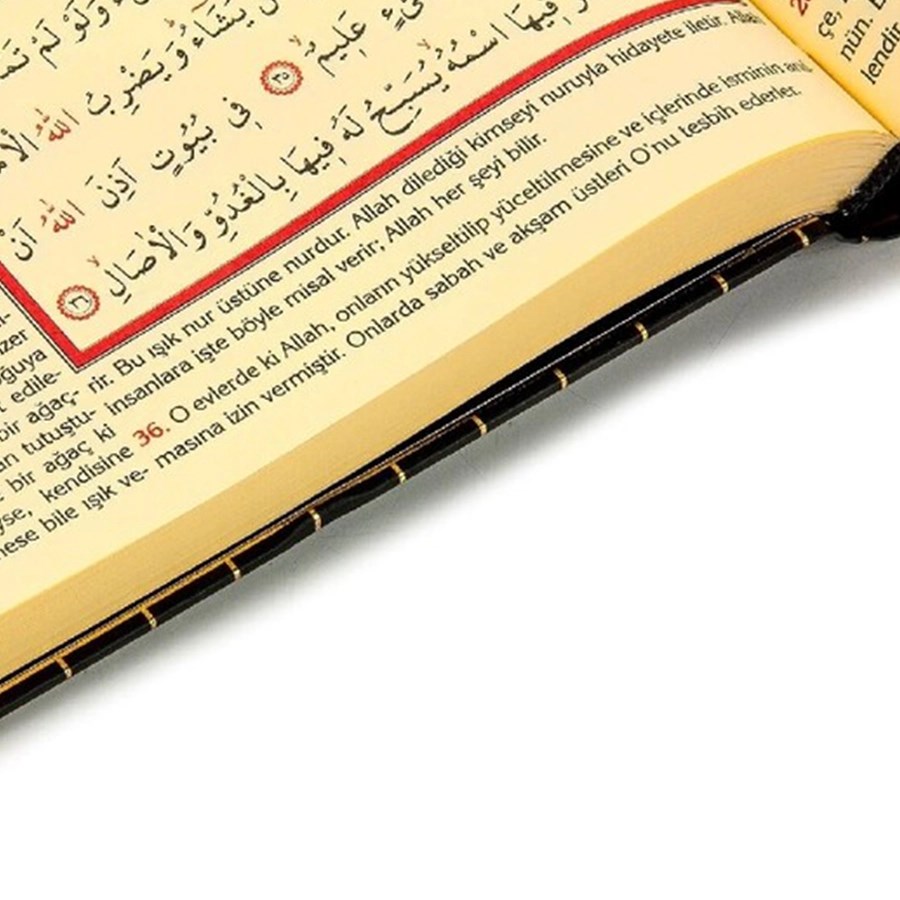 وَلَوْ لَمْ
يَشَاءُ وَيَضْرِبُ اللّٰهُ
عَلِيمٌ ﴿٣٥﴾ فِى بُيُوتٍ اَذِنَ اللّٰهُ اَنْ
فِيهَا اسْمُهُ يُسَبِّحُ لَهُ فِيهَا بِالْغُدُوِّ وَالْاٰصَالِ ﴿٣٦﴾
edile-
bir ağaç-
tutuştu-
bir ağaç ki
kendisine
bile ışık ve-
rir. Bu ışık nur üstüne nurdur. Allah dilediği kimseyi nuruyla hidayete iletir. Allah
insanlara işte böyle misal verir; Allah her şeyi bilir.
36. O evlerde ki Allah, onların yükseltilip yüceltilmesine ve içlerinde isminin anıl-
masına izin vermiştir. Onlarda sabah ve akşam üstleri O'nu tesbih ederler.
çe,
nün.
lendir